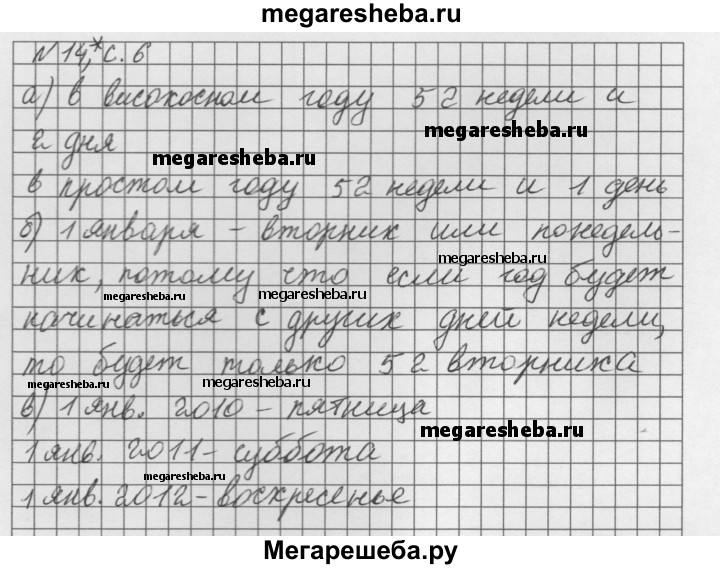 megaresheba.ru
N 14,* с. 6
а) в високосном году 52 недели и
megaresheba.ru
2 дня
megaresheba.ru
в простом году 52 недели и 1 день
б) 1 января - вторник или понедель-
megaresheba.ru
ник, потому что если год будет
megaresheba.ru megaresheba.ru
начинаться с других дней недели,
то будет только 52 вторника
megaresheba.ru megaresheba.ru
в) 1 янв. 2010 - пятница
megaresheba.ru
1 янв. 2011 - суббота
megaresheba.ru
1 янв. 2012 - воскресенье
Мегарешеба.ру